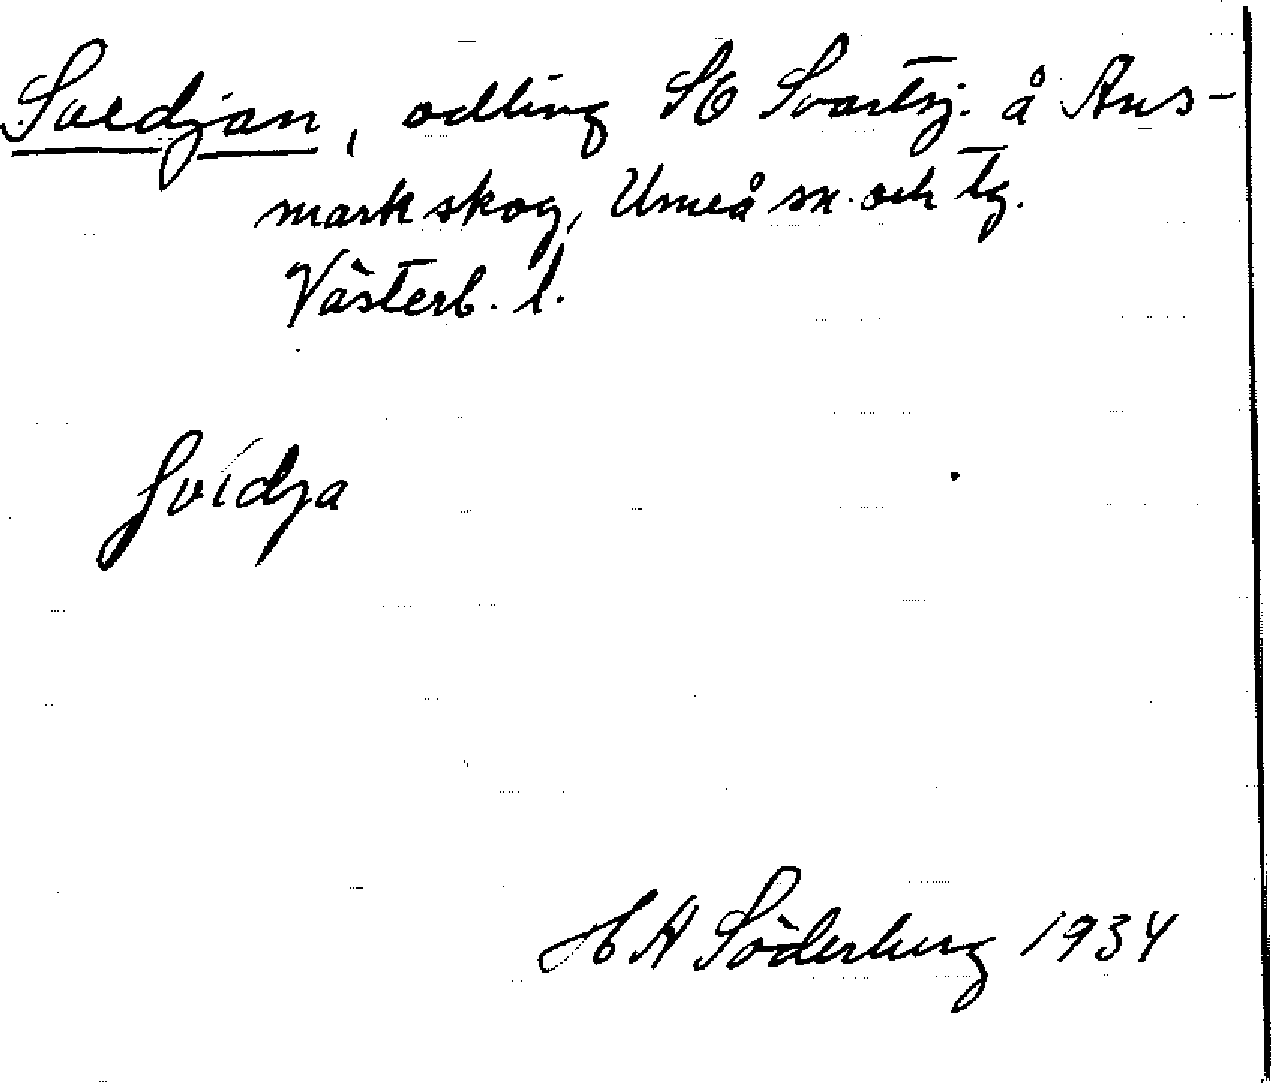 Svedjan, odling SO Svartsj. å Ans-
mark skog, Umeå sn. och tg.
Västerb. l.
svidja
H A Söderberg 1934